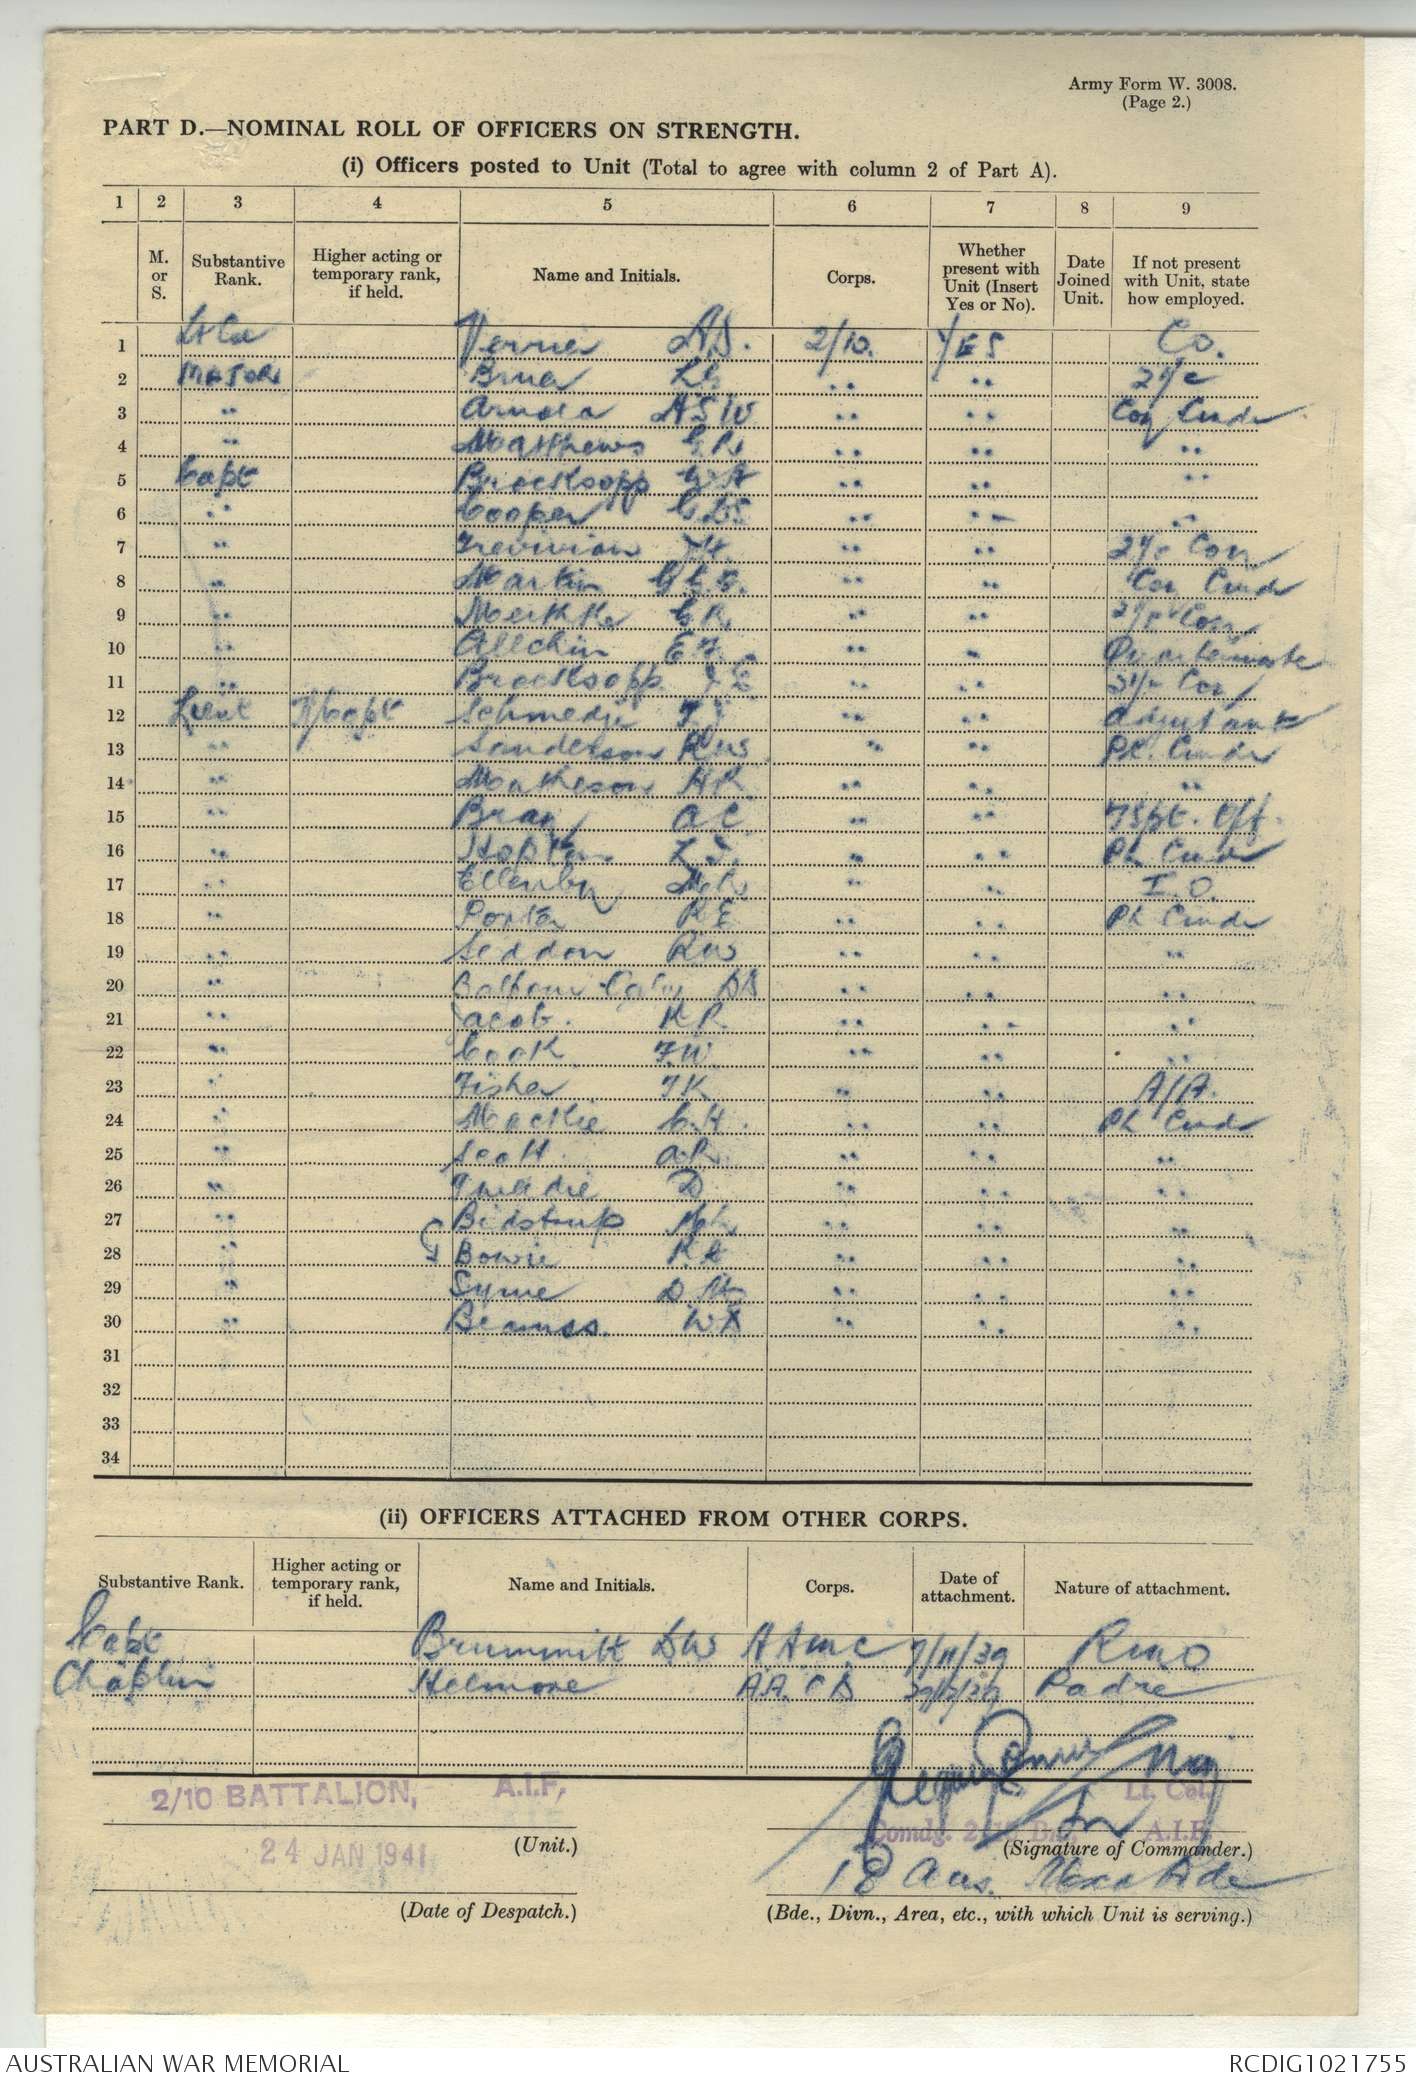 Army Form W. 3008.
(Page 2.)
PART D.—NOMINAL ROLL OF OFFICERS ON STRENGTH.
(i) Officers posted to Unit (Total to agree with column 2 of Part A).
1 2 3 4 5 6 7 8 9
M. or S. Substantive Rank. Higher acting or temporary rank, if held. Name and Initials. Corps. Whether present with Unit (Insert Yes or No). Date Joined Unit. If not present with Unit, state how employed.
1 Lt Col Verrier A.D. 2/10. YES Co.
2 MAJOR Brua 2i/c
3 " Arnold A S W " " Coy Cmdr
4 " Matthews G R " " "
5 Capt Brocksopp " " "
6 " Cooper " " "
7 " Trevivian " " 2i/c Coy
8 " Martin " " Coy Cmdr
9 " Meikke " " 2i/c Coy
10 " Allchin E F " " Quartermaster
11 " Brocksopp J E " " 2i/c Coy
12 Lieut T/Capt Schmedje T J " " Adjutant
13 " Sanderson R W " " Pl. Cmdr
14 " Matheson H R " " "
15 " Bray A C " " Tspt. Off.
16 " " " Pl Cmdr
17 " Ellenby " " I.O.
18 " Porter R E " " Pl Cmdr
19 " Seddon R W " " "
20 " Balfour-Ogilvy " " "
21 " Jacob K R " " "
22 " Cook F W " " "
23 " Fisher T K " " A/A.
24 " Mackie C. H. " " Pl Cmdr
25 " Scott A R " " "
26 " D " " "
27 " Bidstrup M L " " "
28 " Bowie " " "
29 " Syme D " " "
30 " " " "
31
32
33
34
(ii) OFFICERS ATTACHED FROM OTHER CORPS.
Substantive Rank. Higher acting or temporary rank, if held. Name and Initials. Corps. Date of attachment. Nature of attachment.
Capt Brummitt D W A A M C 7/11/39 RMO
Chaplin Helmore A.A. C D Padre
2/10 BATTALION, A.I.F.
Lt. Col.
Comdg. 2/10 Bn. A.I.F.
(Unit.) (Signature of Commander.)
24 JAN 1941
18 Aus. Bde
(Date of Despatch.) (Bde., Divn., Area, etc., with which Unit is serving.)
AUSTRALIAN WAR MEMORIAL RCDIG1021755